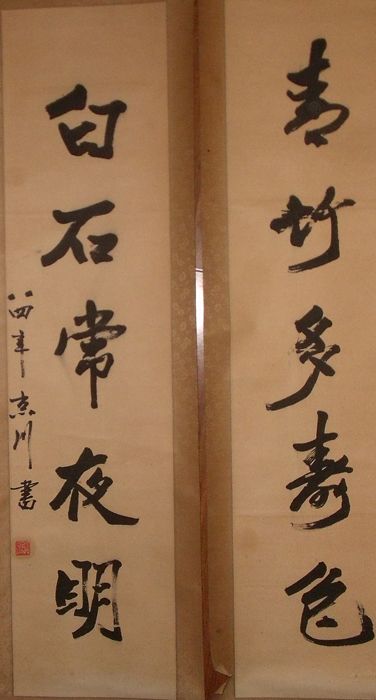 青竹多壽色
白石常夜明
八四年京川書